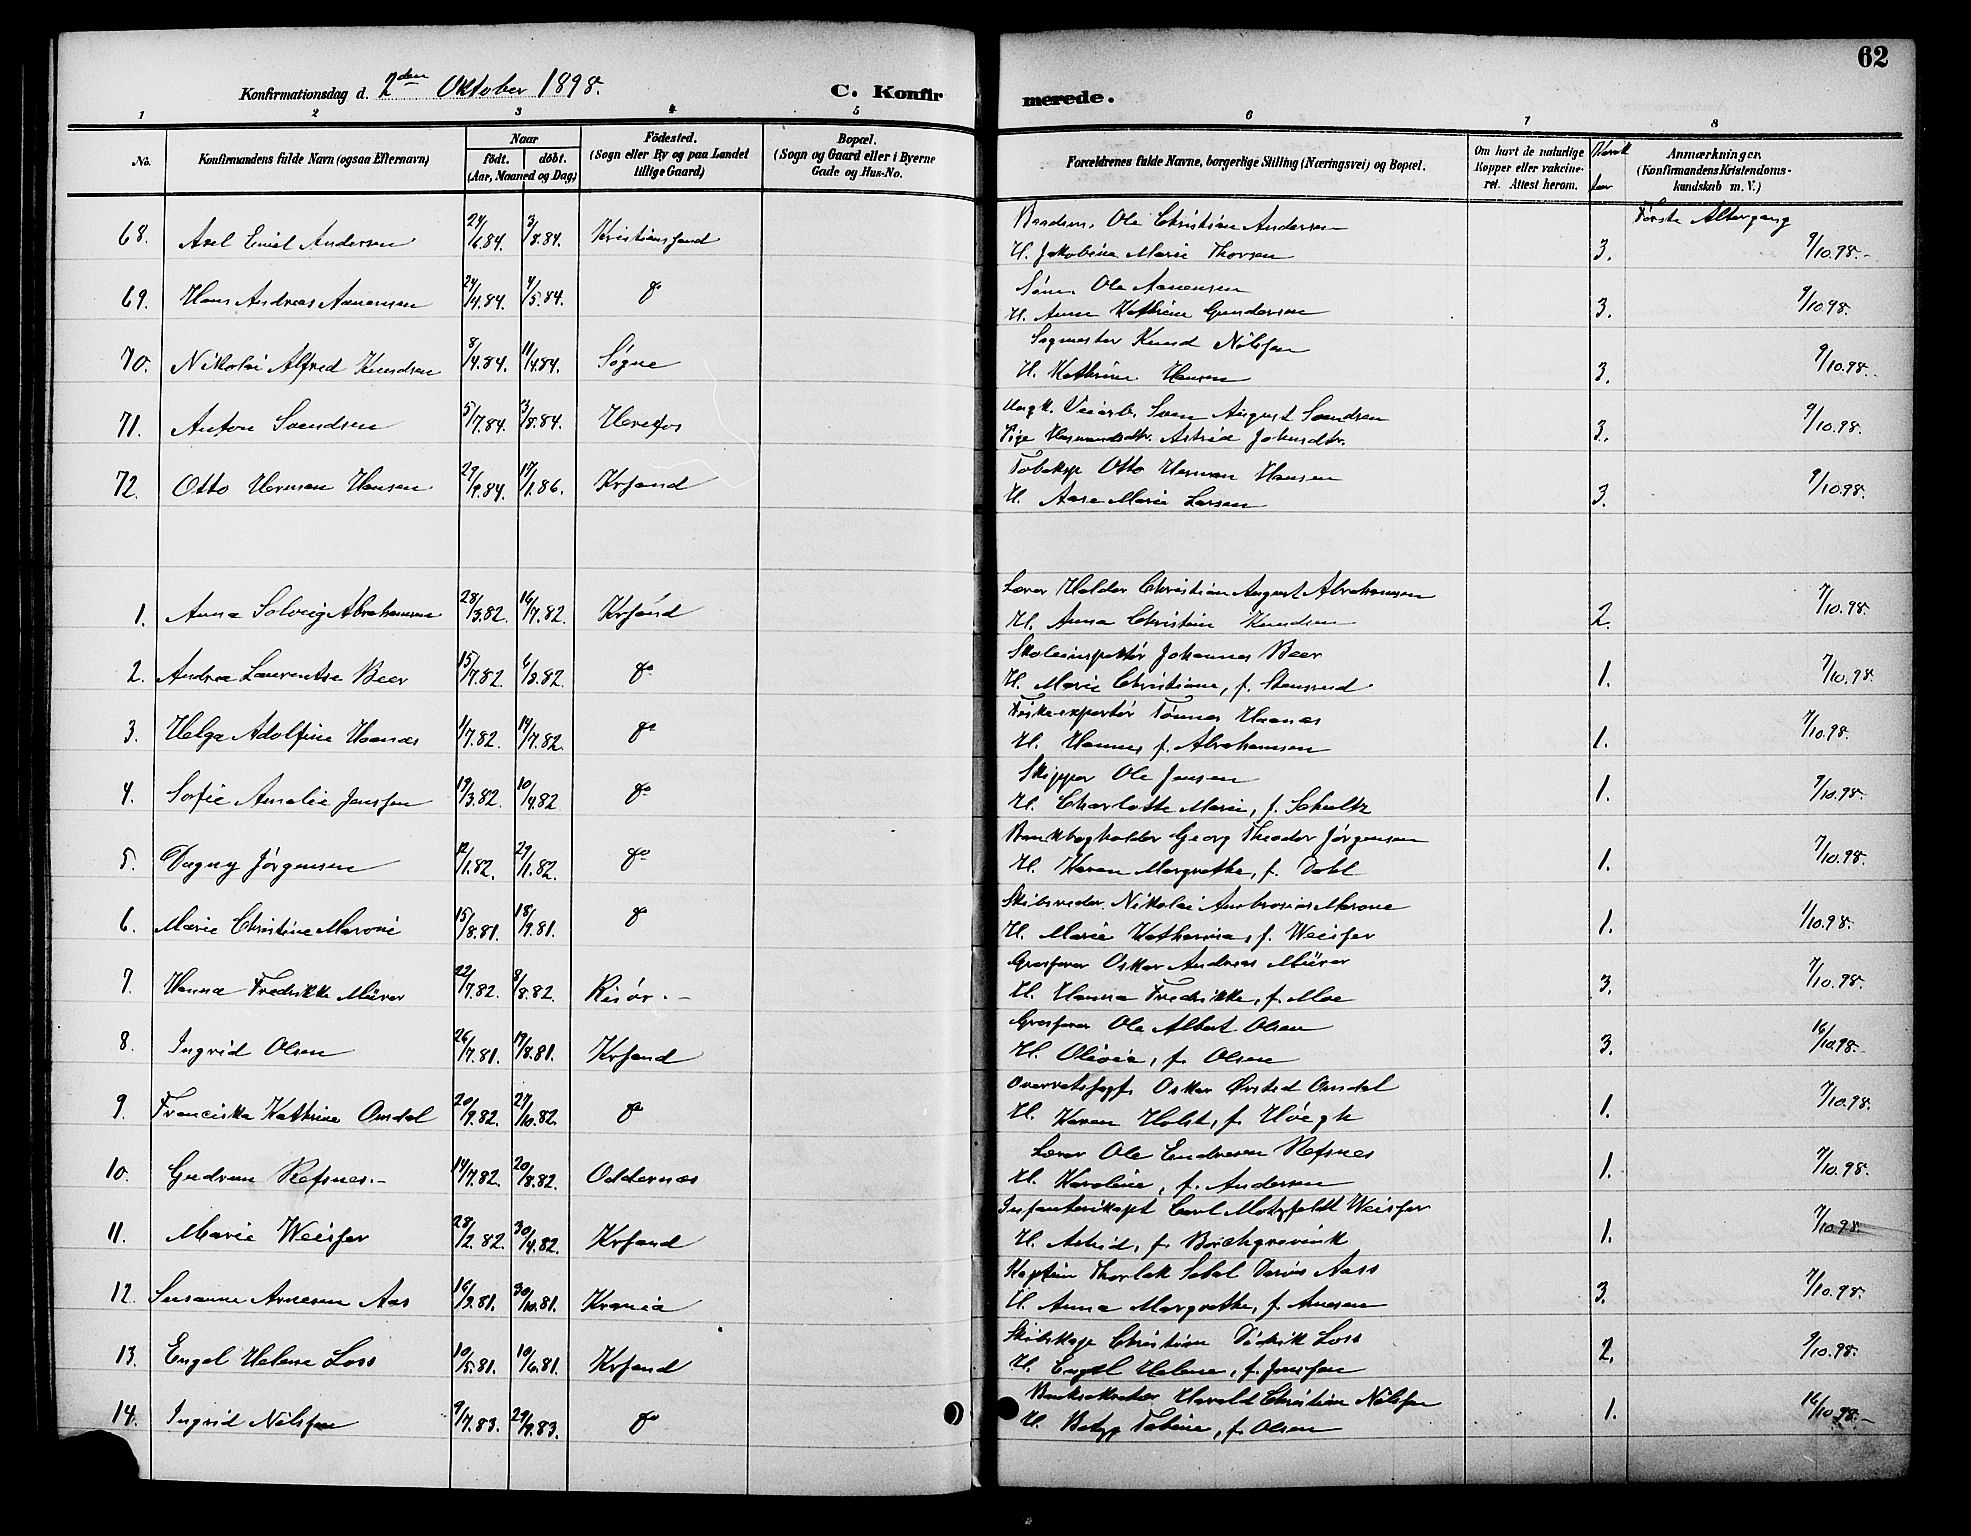 62
Konfirmationsdag d. 2den Oktober 1898.
C. Konfir
merede.
1 2 3 4 5 6 7 8
No.
Konfirmandens fulde Navn (ogsaa Efternavn)
Naar
födt. döbt.
(Aar, Maaned og Dag)
Födested.
(Sogn eller By og paa Landet
tillige Gaard)
Bopæl.
(Sogn og Gaard eller i Byerne
Gade og Hus-No.
Forældrenes fulde Navne, borgerlige Stilling (Næringsvei) og Bopæl.
Om havt de naturlige
Kopper eller vakcine-
ret. Attest herom.
Anmærkninger.
(Konfirmandens Kristendoms-
kundskab m. V.)
Første Altergang
68. Axel Emil Andersen 24/6.84. 3/8.84. Kristianssand
Ole Christian Andersen
H. Jakobine Marie Thorsen 3. 9/10.98.
69. Hans Andreas Aanensen 24/4.84. 4/5.84. do
Søm. Ole Aanensen
H. Anne Kathrine Gundersen 3. 9/10.98.
70. Nikolai Alfred Knudsen 8/4.84. 11/4.84. Søgne
Sagmester Knud Nilssen
H. Kathrine Hansen 3. 9/10.98.
71. Anton Svendsen 5/7.84. 3/8.84. Herefos
Ungk. Veiarb. Sven August Svendsen
Pige Husmandsdtr. Astrid Johnsdtr. 3. 9/10.98.
72. Otto Herman Hansen 27/9.84. 17/1.86. Krsand
Otto Herman Hansen
H. Aase Marie Larsen 3. 9/10.98.
1. Anna Solveig Abrahamsen 28/3.82. 16/7.82. Krsand
Lærer Halder Christian August Abrahamsen
H. Anna Christine Knudsen 2. 7/10.98.
2. Andrea Laurentse Beer 15/7.82. do
Skoleinspektør Johannes Beer
H. Marie Christiane, f. Stensrud 1. 7/10.98.
3. Helga Adolfine Haanæs 1/7.82. 14/7.82. do
Fiskeexportør Tønnes Haanæs
H. Hanne, f. Abrahamsen 1. 7/10.98.
4. Sofie Amalie Janssen 19/3.82. 10/4.82 do
Skipper Ole Jansen
H. Charlotte Marie, f. Schultz 1. 9/10.98.
5. Dagny Jörgensen 12/1.82. 29/1.82. do
Bankbogholder Georg Theodor Jörgensen
H. Karen Margrethe, f. Dahl 1. 7/10.98.
6. Marie Christine Maroni 15/8.81. 18/9.81. do
Skibsreder Nikolai Ambrosius Marone
H. Marie Katharina, f. Weisser 1. /10.98.
7. Hanna Fredrikke Mürer 22/7.82. 8/8.82. Risør.
Grosserer Oskar Andreas Mürer
H. Hanna Fredrikke, f. Moe 3. 7/10.98.
8. Ingrid Olsen 26/7.81. 19/8.81. Krsand
Grosserer Ole Albert Olsen
H. Olivia, f. Olsen 3. 16/10.98.
9. Franciska Kathrine Omdal 20/9.82. 27/10.82. do
Overretssagf. Oskar Ørsted Omdal
H. Karen Holst, f. Höegh 1. 7/10.98.
10. Gudrun Refsnes. 14/7.82. 20/8.82. Oddernæs
Lærer Ole Endresen Refsnes
H. Karoline, f. Andersen 1. 7/10.98.
11. Marie Weisser 28/2.82. 30/4.82. Krsand
Infanterikapt. Carl Motzfeldt Weisser
H. Astrid, f. Borchgrevink 1. 7/10.98.
12. Susanne Arnesen Aas 16/9.81. 30/10.81. Kr.ania
Kaptein Thorlak Aass
H. Anna Margrethe, f. Arnesen 3. 7/10.98.
13. Engel Helene Loss 10/5.81. 19/6.81. Krsand
Skibskap. Christian Didrik Loss
H. Engel Helene, f. Janssen 2. 9/10.98.
14. Ingrid Nilssen 9/7.83. 29/9.83. do
Banksekretær Harald Christian Nilssen
H. Betzy Tabine, f. Olsen 1. 16/10.98.